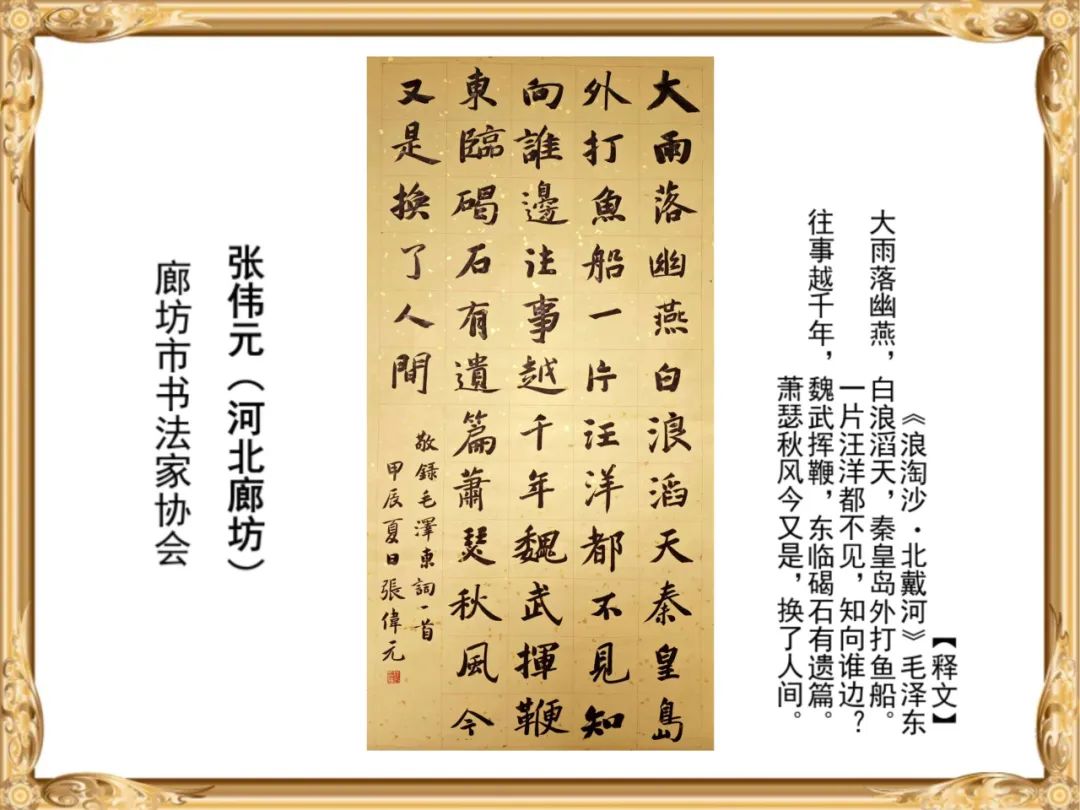 【释文】
《浪淘沙·北戴河》毛泽东
大雨落幽燕，白浪滔天，秦皇岛外打鱼船。
一片汪洋都不见，知向谁边？
往事越千年，魏武挥鞭，东临碣石有遗篇。
萧瑟秋风今又是，换了人间。
大雨落幽燕白浪滔天秦皇島
外打魚船一片汪洋都不見知
向誰邊往事越千年魏武揮鞭
東臨碣石有遺篇蕭瑟秋風今
又是換了人間
敬錄毛澤東詞一首
甲辰夏日張偉元
张伟元（河北廊坊）
廊坊市书法家协会